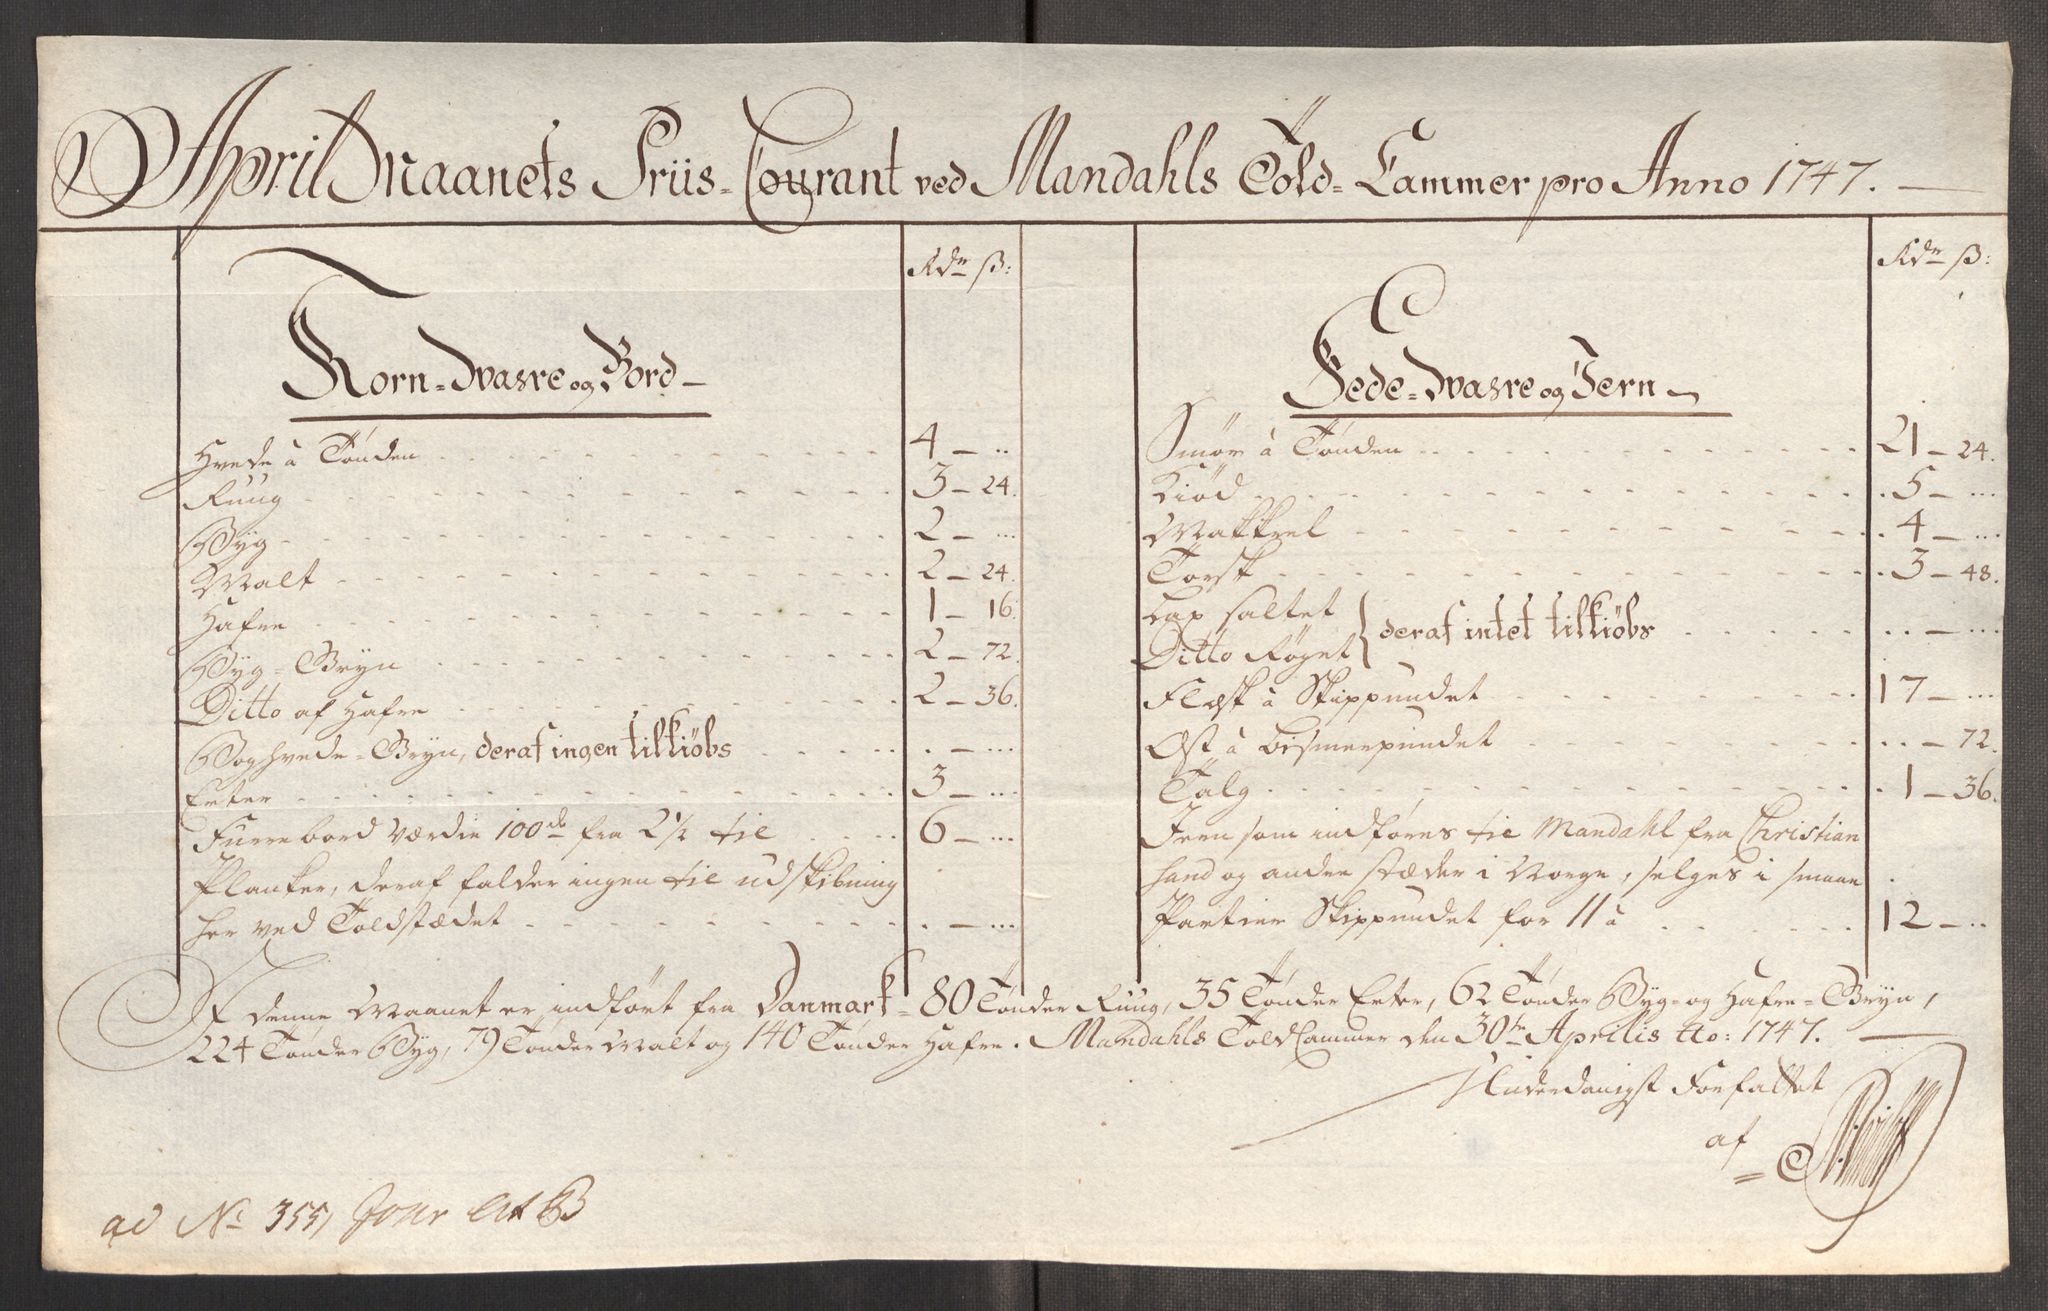 April Maanets Priis-Courant ved Mandahls Told-Cammer pro Anno 1747.
Rdr ß:
Korn-Waare og Bord
Hvede à Tønden 4 - ..
Ruug 3 - 24.
Byg 2 - ...
Malt 2 - 24.
Hafre 1 - 16.
Byg-Gryn 2 - 72.
Ditto af Hafre 2 - 36.
Boghvede-Gryn, deraf ingen tilkiøbs . - ...
Erter 3 - ...
Furrebord Værdie 100de fra 2 1/2 til 6 - ...
Planker, deraf falder ingen til udskibning
her ved Toldstædet . - ...
Rdr ß:
Fede-Waare og Jern
Smør à Tønden 21 - 24.
Kiød 5 - ...
Makkrel 4 - ...
Torsk 3 - 48.
Lax saltet
Ditto Røget } deraf intet tilkiøbs .. - ...
Flæsk à Skippundet 17 - ...
Ost à Bismerpundet .. - 72.
Talg 1 - 36.
Jern som indføres til Mandahl fra Christian
sand og andre stæder i Norge, selges i smaae
Partier Skippundet for 11 à 12 - ..
I denne Maanet er indført fra Danmark = 80 Tønder Ruug, 35 Tønder Erter, 62 Tønder Byg- og Hafre-Gryn,
224 Tønder Byg, 79 Tønder Malt og 140 Tønder Hafre. Mandahls Told Cammer den 30te Aprilis Ao: 1747.
Underdanigst Forfattet
af
ad No 355, Jour Lit B